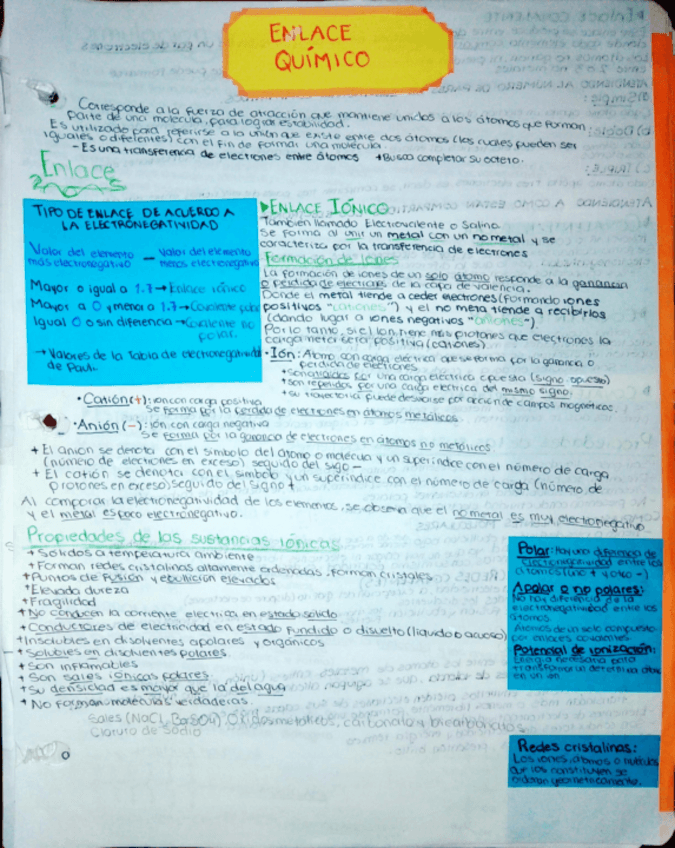 ENLACE
QUÍMICO
Corresponde a la fuerza de atracción que mantiene unidos a los átomos que forman
parte de una molécula, para lograr estabilidad.
Es utilizado para referirse a la unión que existe entre dos átomos (los cuales pueden ser
iguales o diferentes) con el fin de formar una molécula
- Es una transferencia de electrones entre átomos + Busca completar su octeto.
Enlace
TIPO DE ENLACE DE ACUERDO A
LA ELECTRONEGATIVIDAD
Valor del elemento
más electronegativo — Valor del elemento
menos electronegativo
Mayor o igual a 1.7 → Enlace iónico
Mayor a 0 y menor a 1.7 → Covalente polar
Igual 0 o sin diferencia → Covalente no
polar.
→ Valores de la Tabla de electronegatividad
de Pauli.
ENLACE IÓNICO
También llamado Electrovalente o Salino
Se forma al unir un metal con un no metal y se
caracteriza por la transferencia de electrones
Formación de Iones
La formación de iones de un solo átomo responde a la ganancia
o pérdida de electrones de la capa de valencia
Donde el metal tiende a ceder electrones (formando iones
positivos "cationes") y el no metal tiende a recibirlos
(dando lugar a iones negativos "aniones")
Por lo tanto, si el ion tiene más protones que electrones la
carga neta será positiva (cationes)
• Ión: Átomo con carga eléctrica que se forma por la ganancia o
pérdida de electrones
+ son atraídos por una carga eléctrica opuesta (signo opuesto)
+ son repelidos por una carga eléctrica del mismo signo.
+ su trayectoria puede desviarse por acción de campos magnéticos.
• Catión (+): ión con carga positiva
Se forma por la pérdida de electrones en átomos metálicos.
• Anión (-): ión con carga negativa
Se forma por la ganancia de electrones en átomos no metálicos
+ El anión se denota con el símbolo del átomo o molécula y un superíndice con el número de carga
(número de electrones en exceso) seguido del signo -
+ El catión se denota con el símbolo y un superíndice con el número de carga (número de
protones en exceso) seguido del signo +
Al comparar la electronegatividad de los elementos, se observa que el no metal es muy electronegativo
y el metal es poco electronegativo.
Propiedades de las sustancias iónicas
+ Sólidos a temperatura ambiente
+ Forman redes cristalinas altamente ordenadas: forman cristales
+ Puntos de fusión y ebullición elevados
+ Elevada dureza
+ Fragilidad
+ No conducen la corriente eléctrica en estado sólido
+ Conductores de electricidad en estado fundido o disuelto (líquido o acuoso)
+ Insolubles en disolventes apolares y orgánicos
+ Solubles en disolventes polares
+ Son inflamables
+ Son sales iónicas polares
+ Su densidad es mayor que la del agua
+ No forman moléculas verdaderas.
Sales (NaCl, BaSO4) Óxidos metálicos, carbonatos y bicarbonatos
Cloruro de Sodio
Polar: Hay una diferencia de
electronegatividad entre los
átomos (uno + y otro -)
Apolar o no polares:
No hay diferencia de la
electronegatividad entre los
átomos.
Átomos de un solo compuesto
por enlaces covalentes.
Potencial de ionización:
Energía necesaria para
transformar un determinado átomo
en un ión
Redes cristalinas:
Los iones, átomos o moléculas
que los constituyen se
ordenan geométricamente.